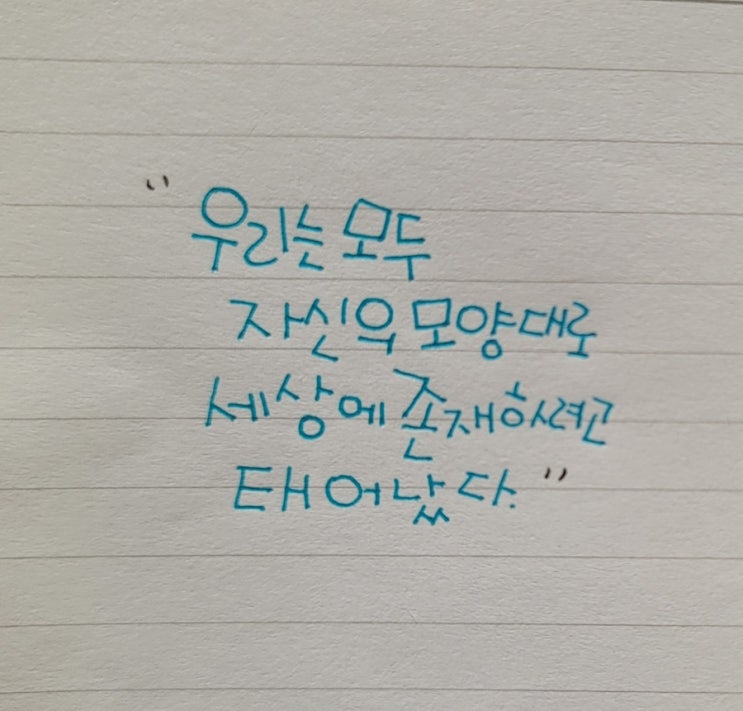 "우리는 모두
자신의 모양대로
세상에 존재하려고
태어났다."